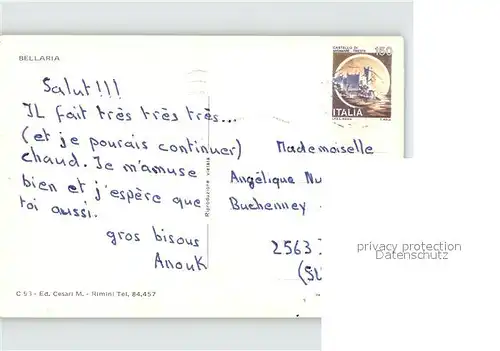 BELLARIA
Salut!!!
IL fait très très très...
(et je pourais continuer)
chaud. Je m'amuse
bien et j'espère que
toi aussi.
gros bisous
Anouk
C 53 - Ed. Cesari M. - Rimini Tel. 84,457
Riproduzione vietata
CASTELLO DI
MIRAMARE - TRIESTE
150
ITALIA
Mademoiselle
Angélique Nu
Buchenney
2563
(SU
privacy protection
Datenschutz